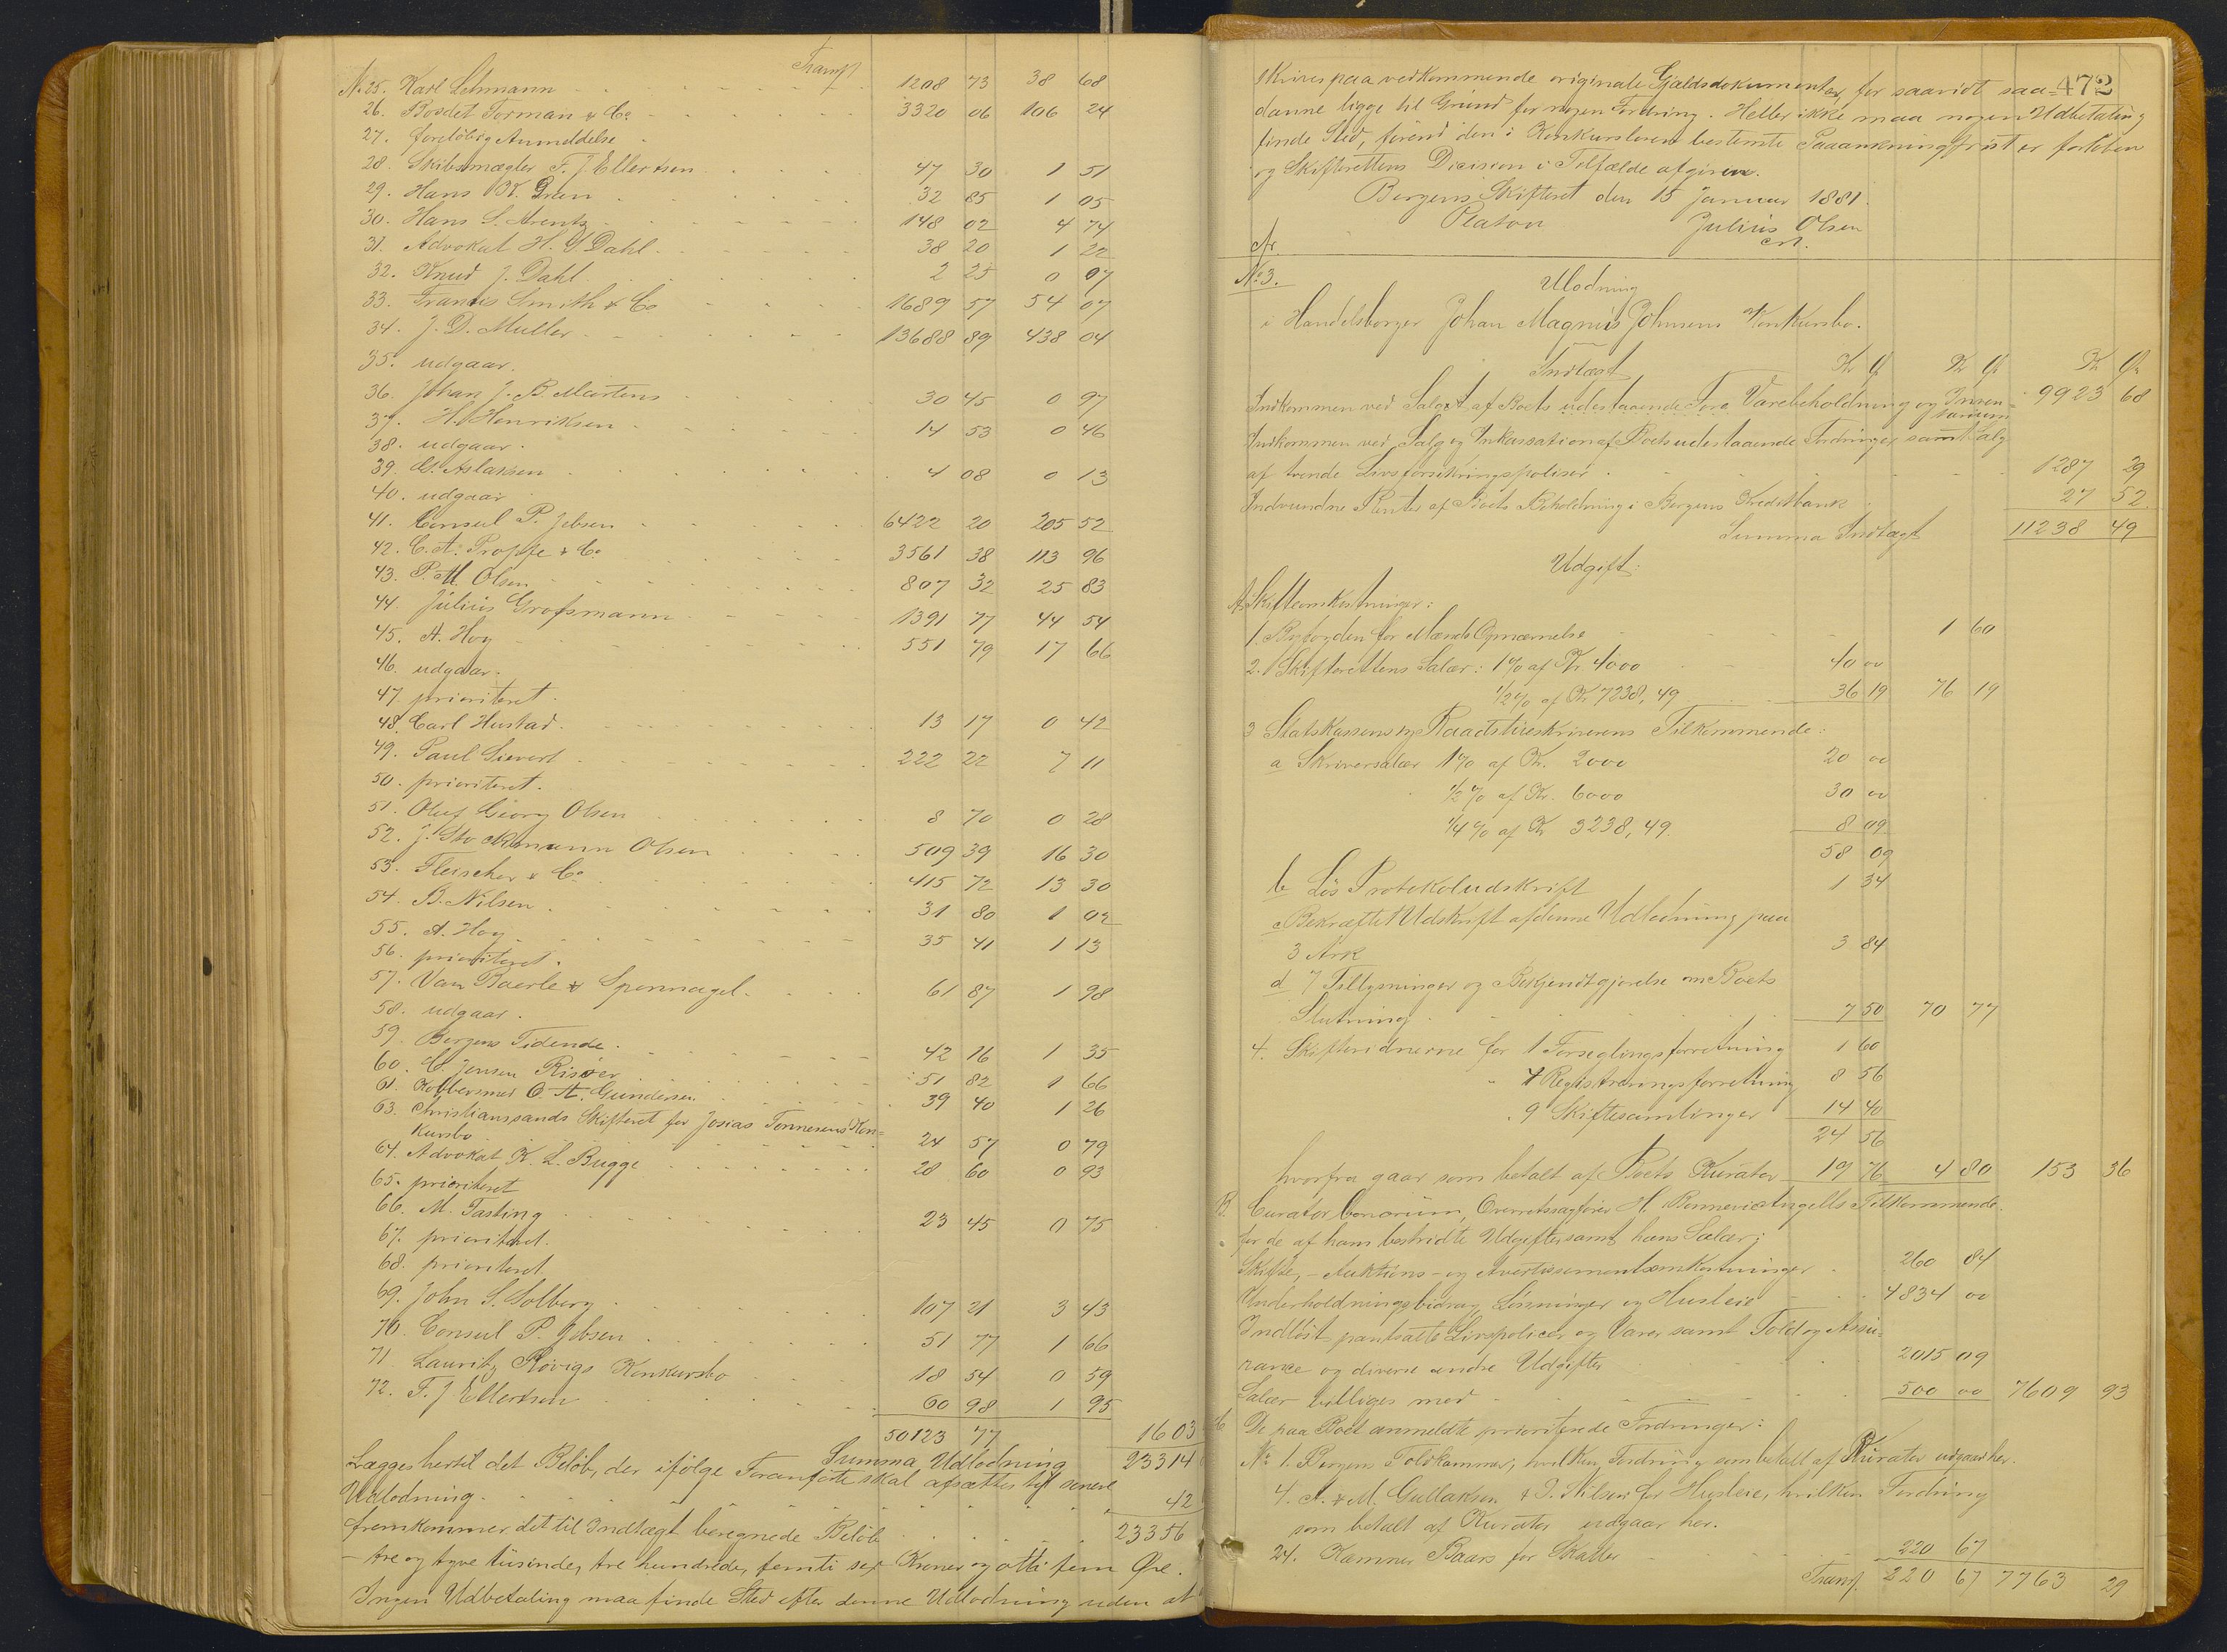 Transp.
No. 25. Karl Lehmann 1208 73 38 68
26. Bordet Forman & Co 3320 06 106 24
27. foreløbig Anmeldelse
28. Skibsmægler F. J Ellertsen 47 30 1 51
29. Hans Gran 32 85 1 05
30. Hans S. Arentz 148 02 4 74
31. Advokat H. G Dahl 38 20 1 22
32. Knud J. Dahl 2 25 0 07
33. Francis Smith & Co 1689 57 54 07
34. J. D. Muller 13688 89 438 04
35. udgaar.
36. Johan J. B Martens 30 45 0 97
37. H. Henriksen 14 53 0 46
38. udgaar.
39. Aslaksen 4 08 0 13
40. udgaar
41. Consul P. Jebsen 6422 20 205 52
42. C. A. Proppe & Co 3561 38 113 96
43. P. M. Olsen 807 32 25 83
44. Julius Grossmann 1391 77 44 54
45. A. Høy 551 79 17 66
46. udgaar.
47. prioriteret.
48. Carl Hustad 13 17 0 42
49. Paul Sievert 222 22 7 11
50. prioriteret.
51. Oluf Georg Olsen 8 70 0 28
52. J. Stockmann Olsen 509 39 16 30
53. Fleischer & Co 415 72 13 30
54. B. Nilsen 31 80 1 02
55. A. Høy 35 41 1 13
56. prioriteret.
57. Van Baerle & Sponnagel 61 87 1 98
58. udgaar.
59. Bergens Tidende. 42 16 1 35
60. C Jensen Risöer 51 82 1 66
61. Kobbersmed O. A. Gundersen 39 40 1 26
63. Christianssands Skifteret for Josias Tonnesens Kon=
kursbo 24 57 0 79
64. Advokat K. L. Bugge 28 60 0 93
65. prioriteret
66. M. Tasting 23 45 0 75
67. prioriteret.
68. prioriteret.
69. John S. Solberg 107 21 3 43
70. Consul P. Jebsen 51 77 1 66
71. Lauritz Rövigs Konkursbo 18 54 0 59
72. F. J Ellertsen 60 98 1 95
50123 77 1603
Summa Udlodning 23314
Lægges hertil det Beløb, der ifølge Foranførte skal afsættes til senere
Udlodning 42
fremkommer det til Indtægt beregnede Beløb 23356
- tre og tyve tusinde, tre hundrede, femti sex Kroner og otti fem Øre.
Ingen Udbetaling maa finde Sted efter denne Udlodning uden at
472
skrives paa vedkommende originale Gjældsdokumenter, for saavidt saa=
danne ligge til Grund for nogen Fordring. Heller ikke maa nogen Udbetaling
finde Sted, førend den i Konkursloven bestemte Paaankningsfrist er forløben
og Skifterettens Decision i Tilfælde afgiven.
Bergens Skifteret den 15 Januar 1881.
Platou Julius Olsen
cst.
No 3.
Udlodning
i Handelsborger Johan Magnus Johnsens Konkursbo.
Indtægt Kr Ør Kr Ør Kr Ør
Indkommen ved Salget af Boets udestaaende Varebeholdning og Inven=
tarium 9923 68
Indkommen ved Salg og Inkassation af Boets udestaaende Fordringer samt Salg
af tvende Livsforsikringspoliser 1287 29
Indvundne Renter af Boets Beholdning i Bergens Kreditbank 27 52
Summa Indtægt 11238 49
Udgift.
A. Skifteomkostninger:
1. Byfogden for Mænds Opnævnelse 1 60
2. Skifterettens Salær: 1% af Kr 4000 40 00
1/2% af Kr 7238,49 36 19 76 19
3 Statskassens og Raadstueskriverens Tilkommende:
a Skriversalær 1% af Kr. 2000 20 00
1/2% af Kr. 6000 30 00
1/4% af Kr 3238,49. 8 09
58 09
b Løs Protokoludskrift 1 34
c Bekræftet Udskrift af denne Udlodning paa
3 Ark 3 84
d 7 Tillysninger og Bekjendtgjørelse om Boets
Slutning 7 50 70 77
4. Skiftevidnerne for 1 Forseglingsforretning 1 60
" 4 Registreringsforretning 8 56
" 9 Skiftesamlinger 14 40
24 56
hvorfra gaar som betalt af Boets Kurator 19 76 4 80 153 36
B. Curator bonorum, Overretssagfører H. Ronnevig Angells Tilkommende
for de af ham bestridte Udgifter samt hans Salær:
Skifte,- Auktions- og Avertissementsomkostninger 260 84
Underholdningsbidrag, Lønninger og Husleie 4834 00
Indløst pantsatte Livspolicer og Varer samt Told og Assu=
rance og diverse andre Udgifter 2015 09
Salær billiges med 500 00 7609 93
C De paa Boet anmeldte prioriterede Fordringer:
No 1. Bergens Toldkammer, hvilken Fordring som betalt af Kurator udgaar her.
4. A. & M. Gullaksen & J. Nilsen for Husleie, hvilken Fordring
som betalt af Kurator udgaar her.
24. Kæmner Baars for Skatter 220 67
Transp. 220 67 7763 29